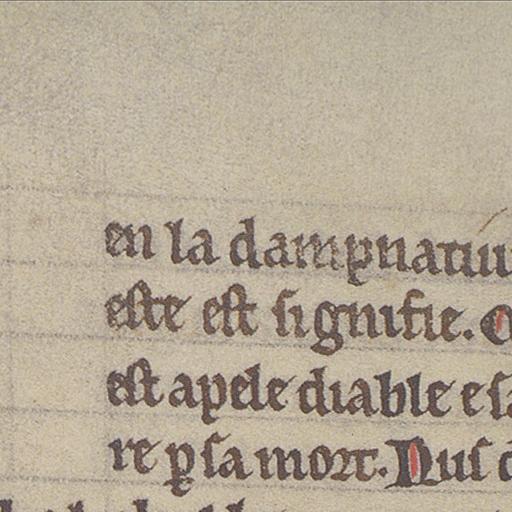 en la dampnatiu
este est signifie.
est apele diable e sa
re ꝑ sa mort. Nus